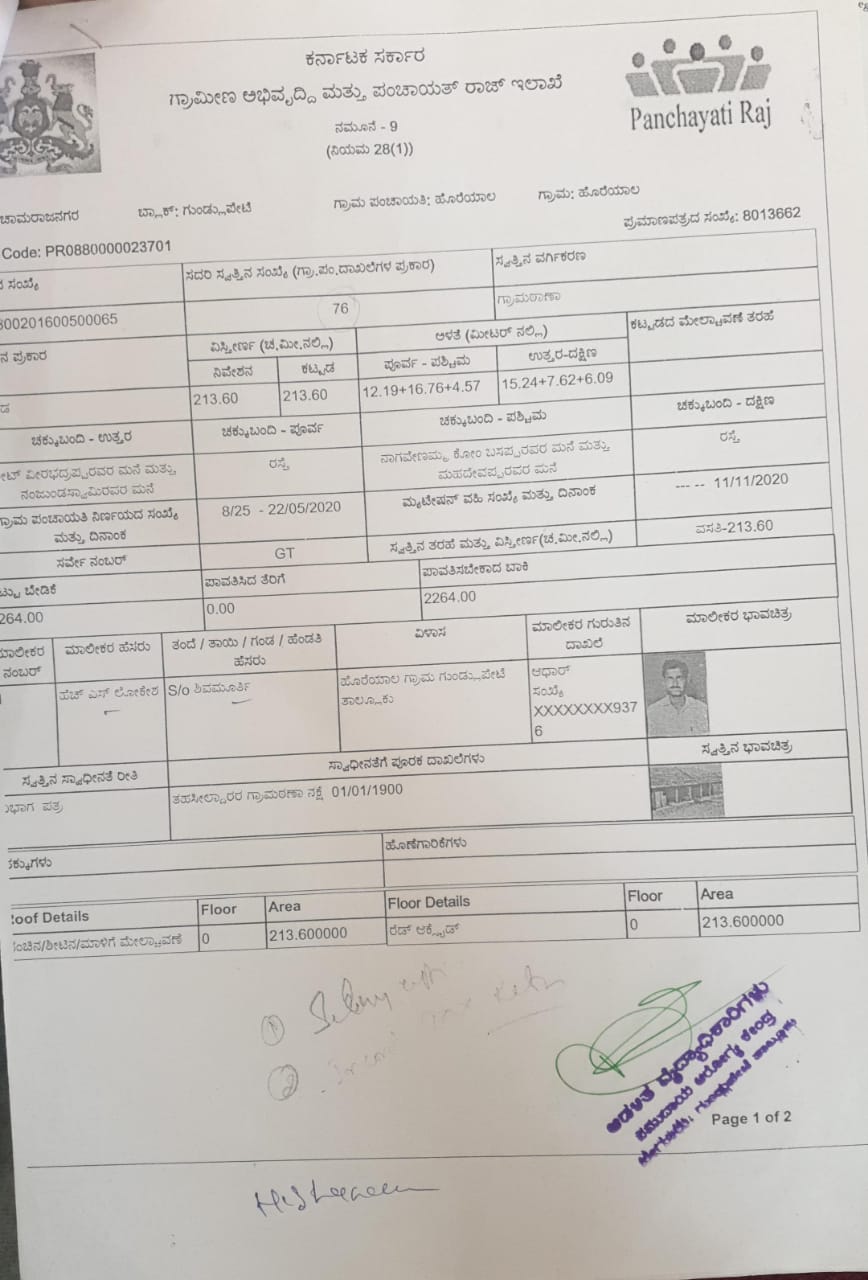 ಕರ್ನಾಟಕ ಸರ್ಕಾರ
ಗ್ರಾಮೀಣ ಅಭಿವೃದ್ದಿ ಮತ್ತು ಪಂಚಾಯತ್ ರಾಜ್ ಇಲಾಖೆ
Panchayati Raj
ನಮೂನೆ - 9
(ನಿಯಮ 28(1))
ಚಾಮರಾಜನಗರ ಬ್ಲಾಕ್: ಗುಂಡ್ಲುಪೇಟೆ ಗ್ರಾಮ ಪಂಚಾಯತಿ: ಹೊರೆಯಾಲ ಗ್ರಾಮ: ಹೊರೆಯಾಲ
ಪ್ರಮಾಣಪತ್ರದ ಸಂಖ್ಯೆ: 8013662
Code: PR0880000023701
ಸಂಖ್ಯೆ ಸದರಿ ಸ್ವತ್ತಿನ ಸಂಖ್ಯೆ (ಗ್ರಾ.ಪಂ.ದಾಖಲೆಗಳ ಪ್ರಕಾರ) ಸ್ವತ್ತಿನ ವರ್ಗಿಕರಣ
800201600500065 76 ಗ್ರಾಮಠಾಣಾ
ನ ಪ್ರಕಾರ ವಿಸ್ತೀರ್ಣ (ಚ.ಮೀ.ನಲ್ಲಿ) ಅಳತೆ (ಮೀಟರ್ ನಲ್ಲಿ) ಕಟ್ಟಡದ ಮೇಲ್ಚಾವಣೆ ತರಹೆ
ನಿವೇಶನ ಕಟ್ಟಡ ಪೂರ್ವ - ಪಶ್ಚಿಮ ಉತ್ತರ-ದಕ್ಷಿಣ
213.60 213.60 12.19+16.76+4.57 15.24+7.62+6.09
ಚಕ್ಕುಬಂದಿ - ಉತ್ತರ ಚಕ್ಕುಬಂದಿ - ಪೂರ್ವ ಚಕ್ಕುಬಂದಿ - ಪಶ್ಚಿಮ ಚಕ್ಕುಬಂದಿ - ದಕ್ಷಿಣ
ವೀರಭದ್ರಪ್ಪರವರ ಮನೆ ಮತ್ತು ರಸ್ತೆ ನಾಗವೇಣಮ್ಮ ಕೋಂ ಬಸಪ್ಪರವರ ಮನೆ ಮತ್ತು ರಸ್ತೆ
ನಂಜುಂಡಸ್ವಾಮಿರವರ ಮನೆ ಮಹದೇವಪ್ಪರವರ ಮನೆ
ಗ್ರಾಮ ಪಂಚಾಯತಿ ನಿರ್ಣಯದ ಸಂಖ್ಯೆ 8/25 - 22/05/2020 ಮ್ಯುಟೇಷನ್ ವಹಿ ಸಂಖ್ಯೆ ಮತ್ತು ದಿನಾಂಕ --- -- 11/11/2020
ಮತ್ತು ದಿನಾಂಕ
ಸರ್ವೇ ನಂಬರ್ GT ಸ್ವತ್ತಿನ ತರಹೆ ಮತ್ತು ವಿಸ್ತೀರ್ಣ(ಚ.ಮೀ.ನಲ್ಲಿ) ವಸತಿ-213.60
ಬೇಡಿಕೆ ಪಾವತಿಸಿದ ತೆರಿಗೆ ಪಾವತಿಸಬೇಕಾದ ಬಾಕಿ
2264.00 0.00 2264.00
ಮಾಲೀಕರ ಮಾಲೀಕರ ಹೆಸರು ತಂದೆ / ತಾಯಿ / ಗಂಡ / ಹೆಂಡತಿ ವಿಳಾಸ ಮಾಲೀಕರ ಗುರುತಿನ ಮಾಲೀಕರ ಭಾವಚಿತ್ರ
ನಂಬರ್ ಹೆಸರು ದಾಖಲೆ
ಹೆಚ್ ಎಸ್ ಲೋಕೇಶ S/o ಶಿವಮೂರ್ತಿ ಹೊರೆಯಾಲ ಗ್ರಾಮ ಗುಂಡ್ಲುಪೇಟೆ ಆಧಾರ್
ತಾಲ್ಲೂಕು ಸಂಖ್ಯೆ
XXXXXXXX937
6
ಸ್ವತ್ತಿನ ಸ್ವಾಧೀನತೆ ರೀತಿ ಸ್ವಾಧೀನತೆಗೆ ಪೂರಕ ದಾಖಲೆಗಳು ಸ್ವತ್ತಿನ ಭಾವಚಿತ್ರ
ಭಾಗ ಪತ್ರ ತಹಸೀಲ್ದಾರರ ಗ್ರಾಮಠಾಣಾ ನಕ್ಷೆ 01/01/1900
ಹಕ್ಕುಗಳು ಹೊಣೆಗಾರಿಕೆಗಳು
Roof Details Floor Area Floor Details Floor Area
ಹಂಚಿನ/ಶೀಟಿನ/ಮಾಳಿಗೆ ಮೇಲ್ಚಾವಣೆ 0 213.600000 ರೆಡ್ ಆಕ್ಸೈಡ್ 0 213.600000
ಆಡಳಿತ ವೈದ್ಯಾಧಿಕಾರಿಗಳು
ಸಮುದಾಯ ಆರೋಗ್ಯ ಕೇಂದ್ರ
Page 1 of 2